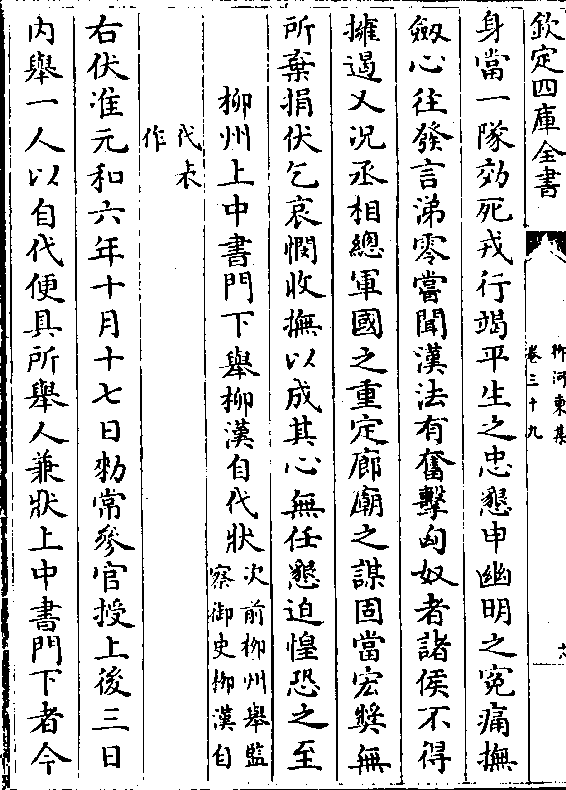 欽定四庫全書
柳河東集
卷三十九
身當一隊効死戎行竭平生之忠懇申幽明之寃痛撫
劔心往發言涕零嘗聞漢法有奮擊匈奴者諸侯不得
擁遏乂况丞相總軍國之重定廊廟之謀固當宏奬無
所棄捐伏乞哀憫收撫以成其心無任懇迫惶恐之至
柳州上中書門下舉柳漢自代狀
次前柳州舉監
察御史柳漢自
代表
作
右伏准元和六年十月十七日勑常參官授上後三日
内舉一人以自代便具所舉人兼狀上中書門下者今